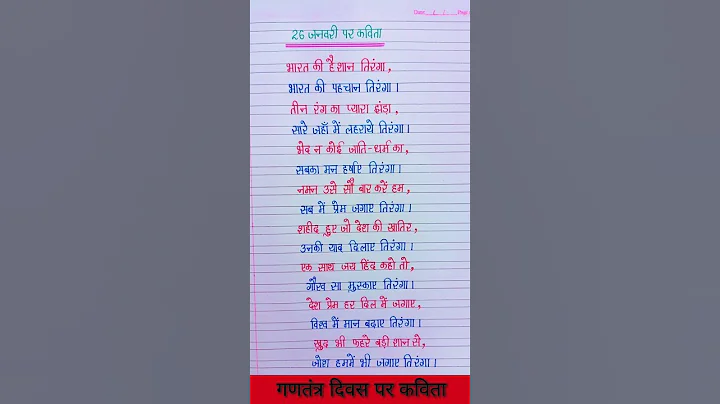 Date: / / Page
26 जनवरी पर कविता
भारत की है शान तिरंगा,
भारत की पहचान तिरंगा।
तीन रंग का प्यारा झंडा,
सारे जहाँ में लहराये तिरंगा।
भेद न कोई जाति-धर्म का,
सबका मन हर्षाए तिरंगा।
नमन उसे सौ बार करें हम,
सब में प्रेम जगाए तिरंगा।
शहीद हुए जो देश की खातिर,
उनकी याद दिलाए तिरंगा।
एक साथ जय हिंद कहो तो,
गौरव सा मुस्काए तिरंगा।
देश प्रेम हर दिल में जगाए,
विश्व में मान बढ़ाए तिरंगा।
खुद भी फहरे बड़ी शान से,
जोश हममें भी जगाए तिरंगा।
गणतंत्र दिवस पर कविता